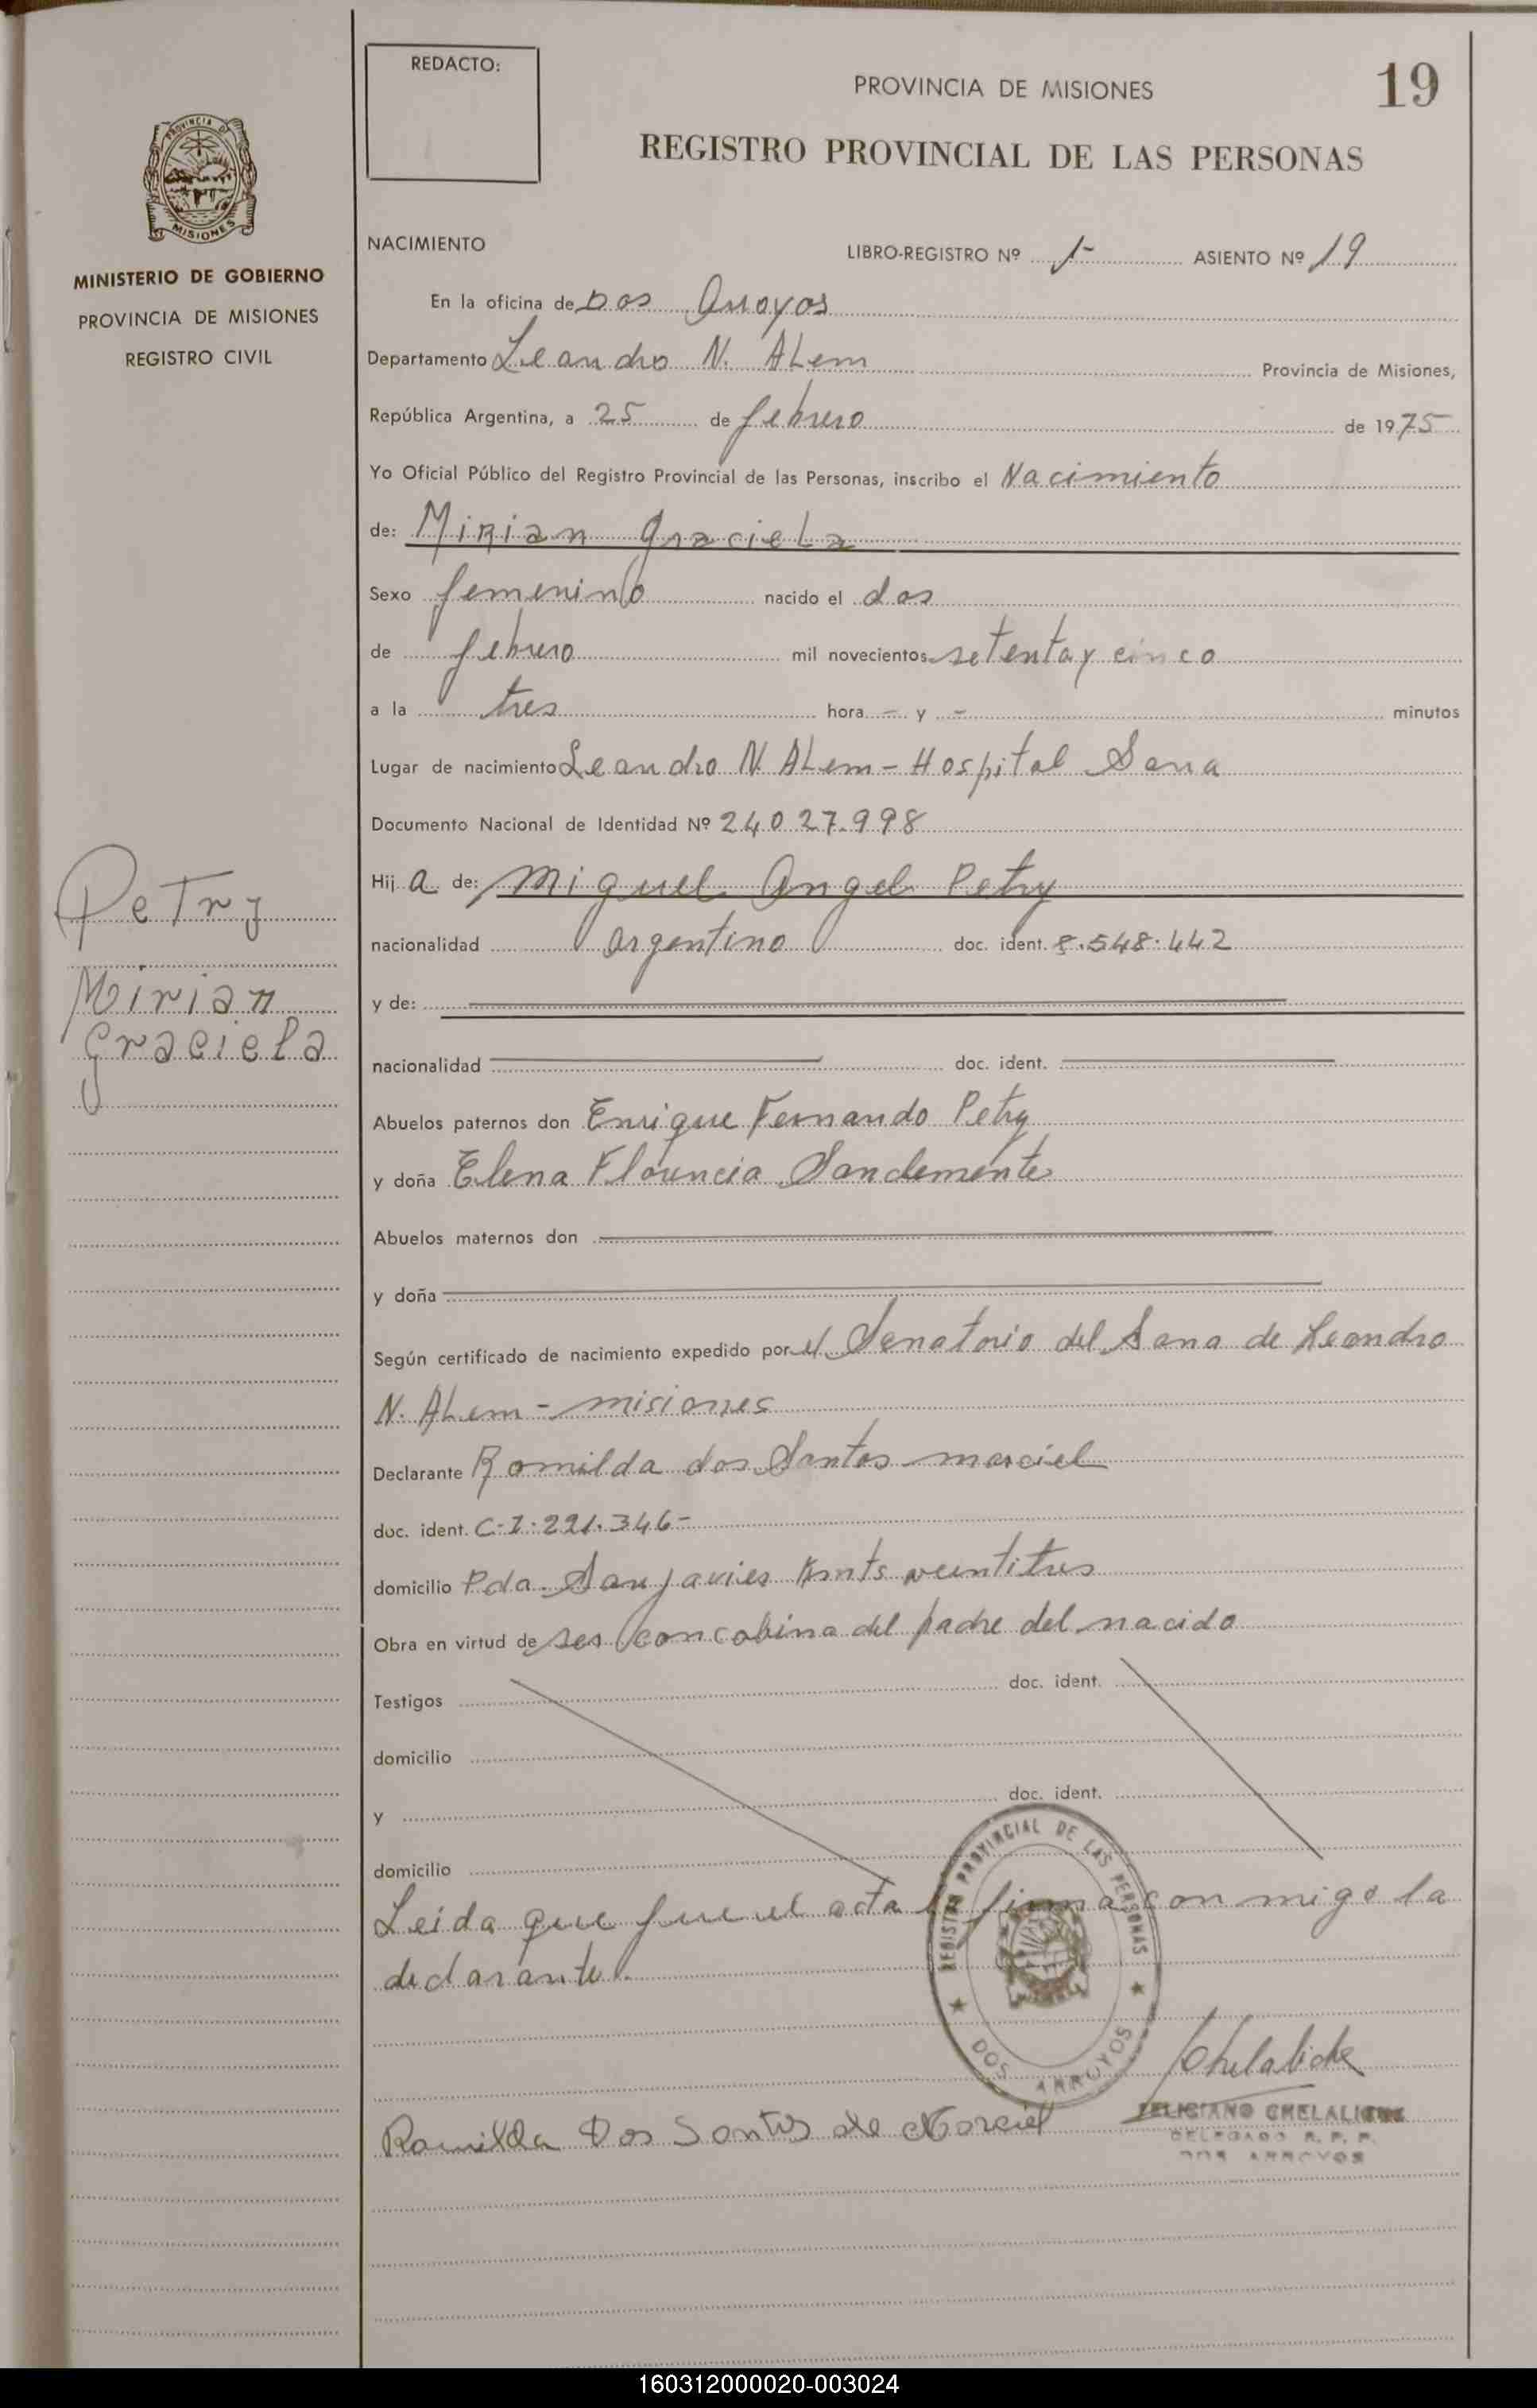 REDACTO:
PROVINCIA DE MISIONES
19
REGISTRO PROVINCIAL DE LAS PERSONAS
PROVINCIA DE
MISIONES
MINISTERIO DE GOBIERNO
PROVINCIA DE MISIONES
REGISTRO CIVIL
NACIMIENTO
LIBRO-REGISTRO Nº 1- ASIENTO Nº 19
En la oficina de Dos Arroyos
Departamento Leandro N. ALem Provincia de Misiones,
República Argentina, a 25 de febrero de 1975
Yo Oficial Público del Registro Provincial de las Personas, inscribo el Nacimiento
de: Mirian Graciela
Sexo femenino nacido el dos
de febrero mil novecientos setenta y cinco
a la tres hora - y - minutos
Lugar de nacimiento Leandro N. ALem - Hospital Sana
Documento Nacional de Identidad Nº 24.027.998
Hija de: Miguel Angel Petry
nacionalidad argentino doc. ident. 8.548.442
y de:
nacionalidad doc. ident.
Abuelos paternos don Enrique Fernando Petry
y doña Elena Florencia Sanclemente
Abuelos maternos don
y doña
Según certificado de nacimiento expedido por el Senatorio del Sana de Leandro
N. ALem - misiones
Declarante Romilda dos Santos marciel
doc. ident. C.I. 221.346-
domicilio Pda. San javier kmts veintitres
Obra en virtud de ser concobina del padre del nacido
Testigos doc. ident.
domicilio
y doc. ident.
domicilio
Leida que fue el acta la firma con migo la
declarante.
REGISTRO PROVINCIAL DE LAS PERSONAS
DOS ARROYOS
Chelaliche
FELICIANO CHELALICHE
DELEGADO R. P. P.
DOS ARROYOS
Romilda Dos Santos de Marciel
Petry
Mirian
Graciela
160312000020-003024